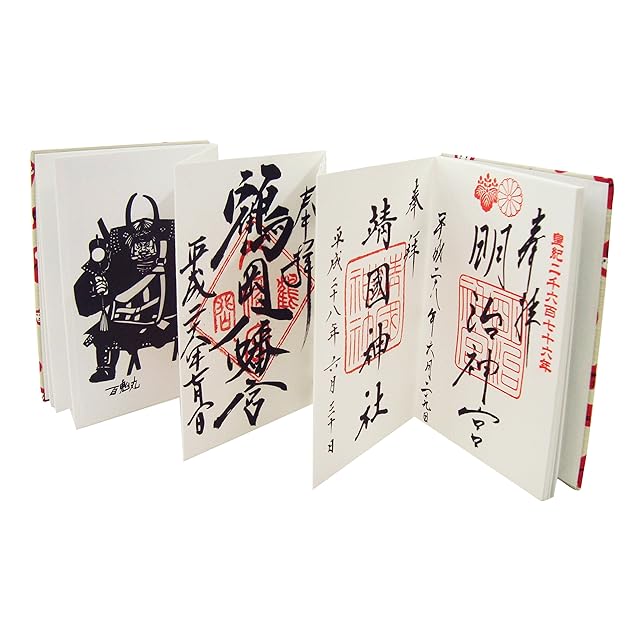 皇紀二千六百七十六年
奉拝
明治神宮
平成二八年六月二九日
奉拝
靖國神社
平成二十八年六月三十日
奉拝
鶴岡八幡宮
平成二八年七月
百鬼丸